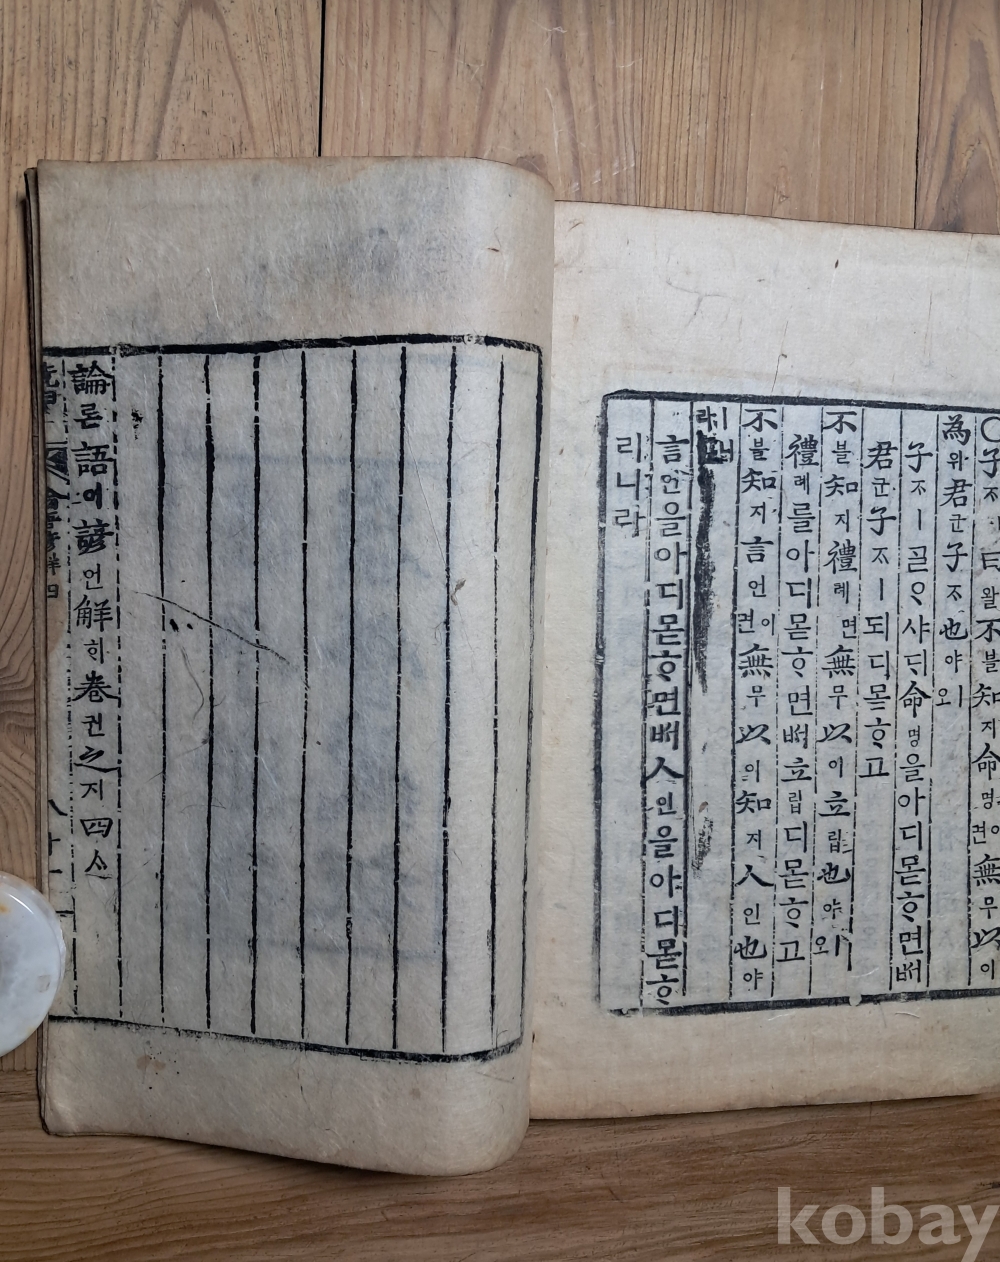 ○子ᄌᆞㅣ曰왈不블知지命명이면無무以이
為위君군子ᄌᆞ也야ㅣ오
子ᄌᆞㅣᄀᆞᆯᄋᆞ샤ᄃᆡ命명을아디몯ᄒᆞ면ᄡᅥ
君군子ᄌᆞㅣ되디몯ᄒᆞ고
不블知지禮례면無무以이立립也야ㅣ오
禮례를아디몯ᄒᆞ면ᄡᅥ立립디몯ᄒᆞ고
不블知지言언이면無무以이知지人인也야
ㅣ니라
言언을아디몯ᄒᆞ면ᄡᅥ人인을아디몯ᄒᆞ
리니라
論론語어諺언解ᄒᆡ卷권之지四ᄉᆞ
kobay